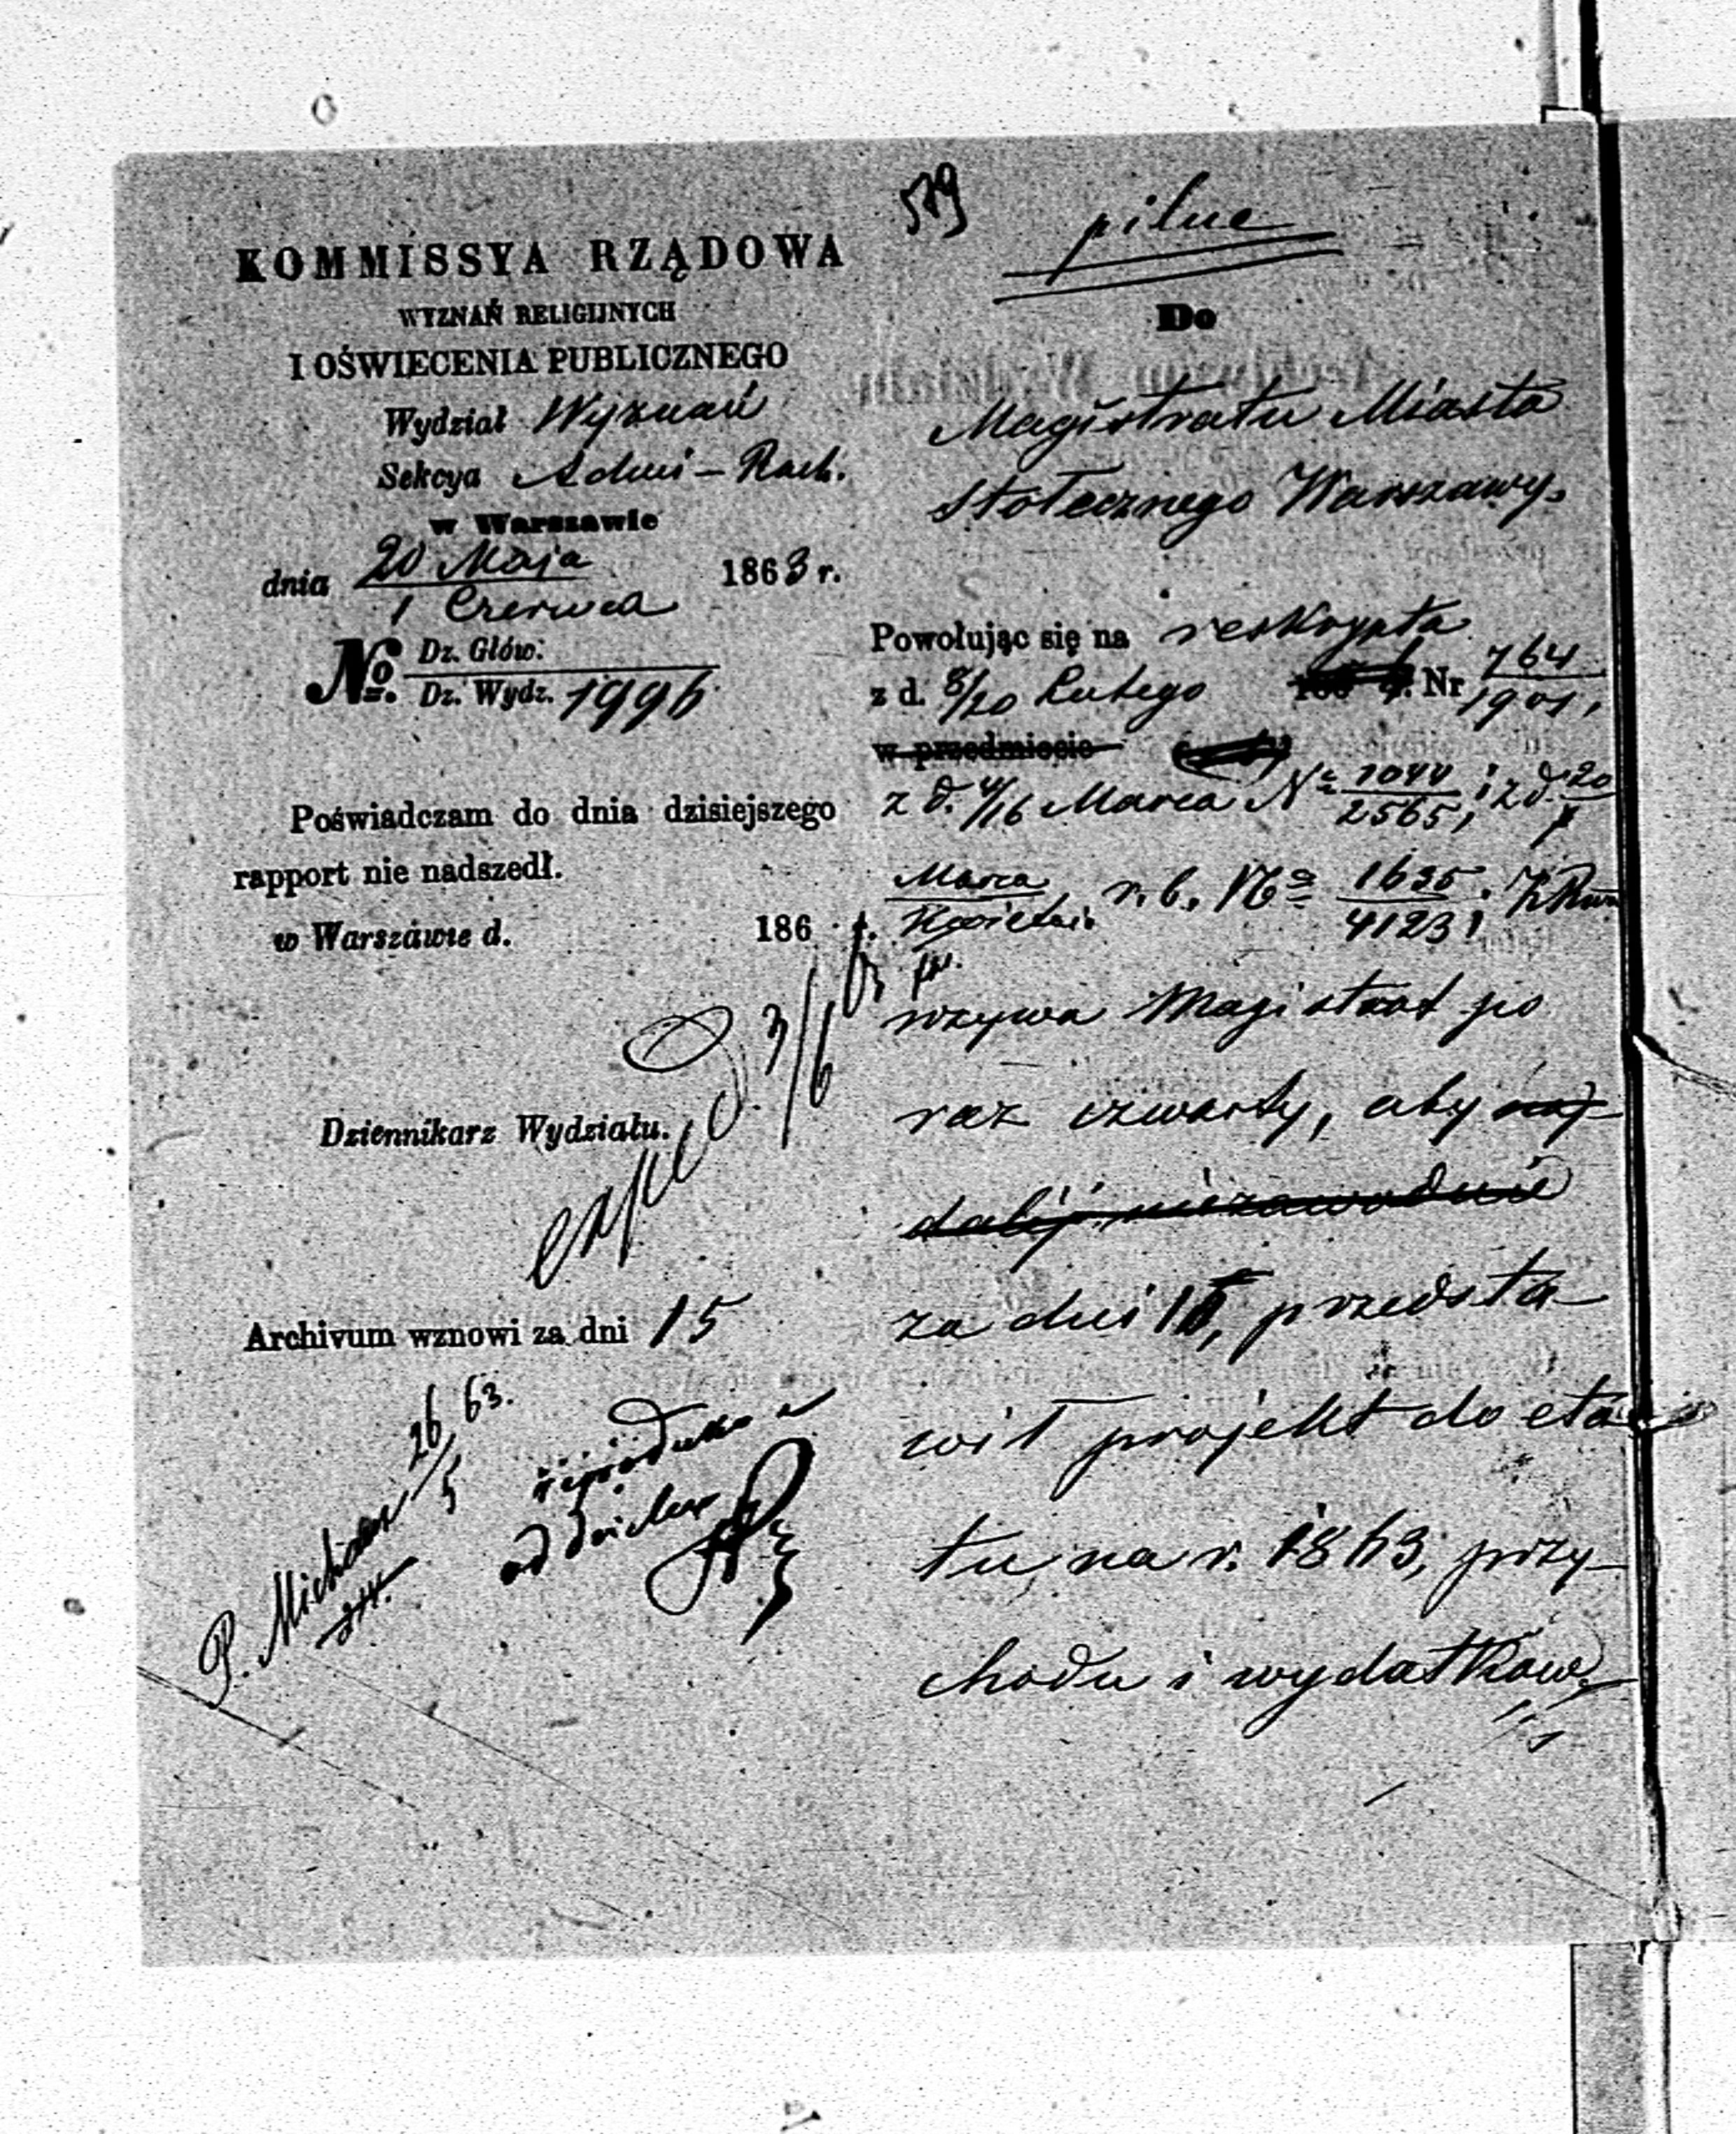 KOMMISSYA RZĄDOWA
WYZNAŃ RELIGIJNYCH
I OŚWIECENIA PUBLICZNEGO
Wydział Wyznań
Sekcya Admi - Rach.
w Warszawie
dnia 20 Maja / 1 Czerwca 1863 r.
No. Dz. Głów:
Dz. Wydz. 1996
Poświadczam do dnia dzisiejszego
rapport nie nadszedł.
w Warszawie d. 186 r.
Dziennikarz Wydziału.
exped. 3/6 63
Archivum wznowi za dni 15
P. Michaux 26/5 63.
579
pilne
Do
Magistratu Miasta
Stołecznego Warszawy.
Powołując się na reskrypta
z d. 8/20 Lutego Nr 764/1901,
w przedmiocie
z d. 4/16 Marca No 1044/2565, i z d. 20/1
Marca/Kwietni. r. b. No 1635/4123,
wzywa Magistrat po
raz czwarty, aby naj-
dalej niezawodnie
za dni przedsta-
wił projekt do eta-
tu, na r. 1863, przy-
chodu i wydatków